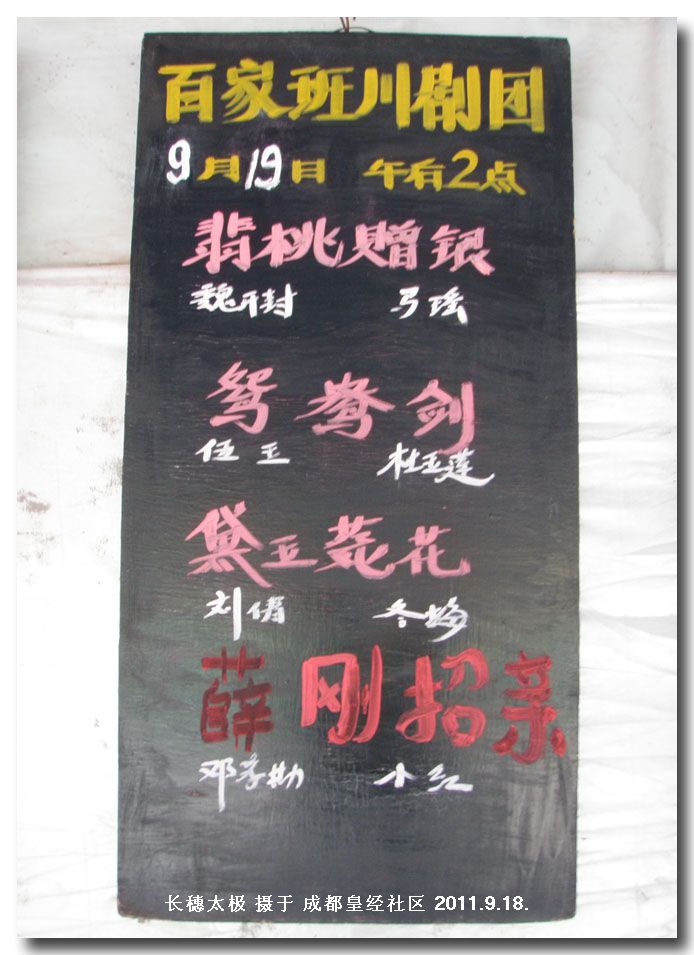 百家班川剧团
9月19日 午后2点
翡桃赠银
鸳鸯剑
伍王 杜玉莲
黛玉葬花
刘倩 冬梅
薛刚招亲
邓孝勤 小红
长穗太极 摄于 成都皇经社区 2011.9.18.